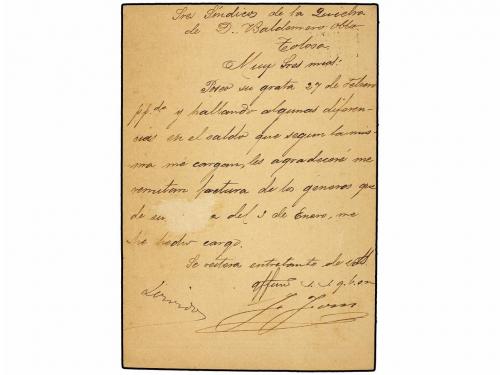 Sres Síndicos de la Quiebra
de D. Valdomero Obla
Tolosa
Muy Sres mios:
Poseo su grata 27 de Febrero
pp.do y hallando algunas diferen
cias en el saldo que segun la mis
ma me cargan, les agradeceré me
remitan factura de los generos que
de su a del 3 de Enero, me
he hecho cargo.
Se reitera entretanto de
affmo s. s. q. b. s. m.